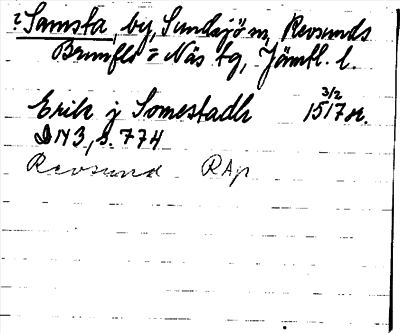 ? Samsta, by, Sundsjö sn, Revsunds
Brunflo o Näs tg, Jämtl. l.
Erik j Somestadh 3/2 1517 or.
DN 3, s. 774
Revsund RAp